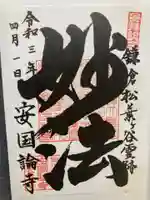 鎌倉松葉ヶ谷霊跡
妙法
安国論寺
令和三年
四月一日